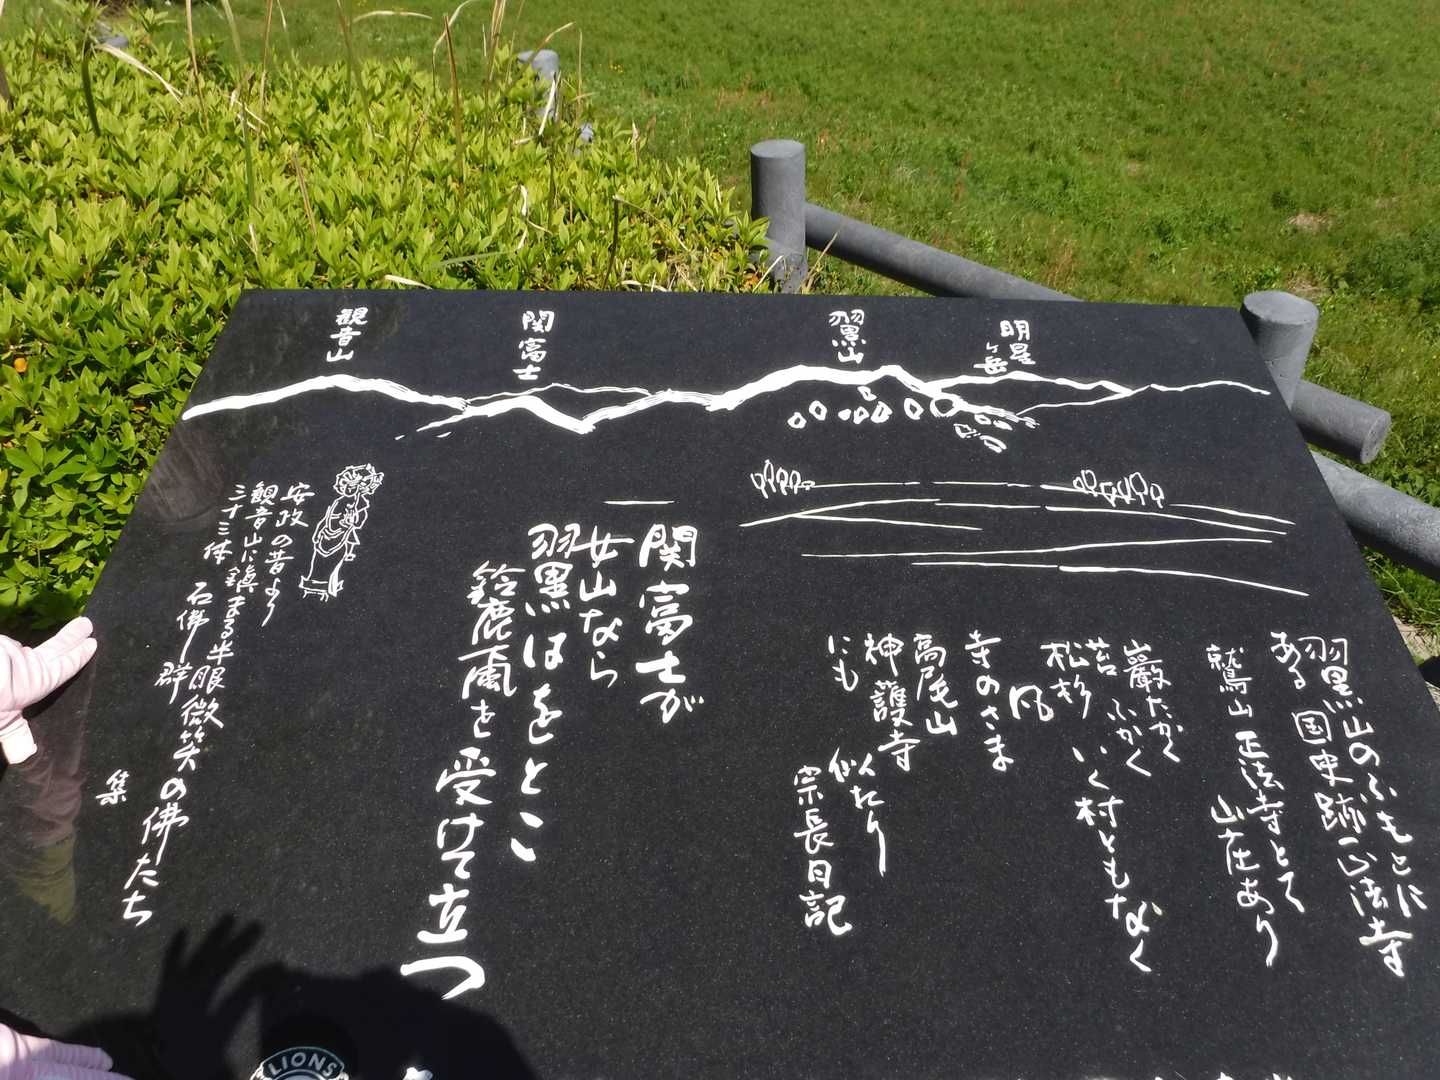 観音山
関富士
羽黒山
明星ヶ岳
羽黒山のふもとに
ある国史跡正法寺
鷲山正法寺とて
山在あり
巌たかく
苔ふかく
松杉いく村ともなく
風
寺のさま
高尾山
神護寺
にも似たり
宗長日記
関富士が
女山なら
羽黒はをとこ
鈴鹿風を受けて立つ
安政の昔より
観音山に鎮まる半眼微笑の佛たち
三十三体石佛群
集
LIONS